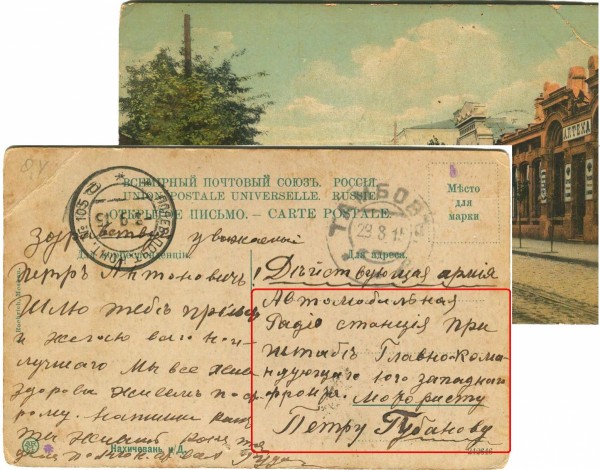 АПТЕКА
ВСЕМІРНЫЙ ПОЧТОВЫЙ СОЮЗЪ. РОССІЯ.
UNION POSTALE UNIVERSELLE. RUSSIE.
ОТКРЫТОЕ ПИСЬМО. – CARTE POSTALE.
Мѣсто
для
марки
ТАМБОВЪ
29.8.15
№ 105
Для корреспонденціи
Для адреса.
Здравствуй уважаемый
Петръ Антоновичъ!
Шлю тебѣ привѣт
и желаю всего наи
лучшаго Мы все жив
здоровы живемъ по
рому. Напиши как
ты
Дѣйствующая армія
Автомобильная
Радіо станція при
штабѣ Главно-кома-
ндующаго юго западнаго
фронта. Мотористу
Петру Губанову
Нахичевань н/Д.